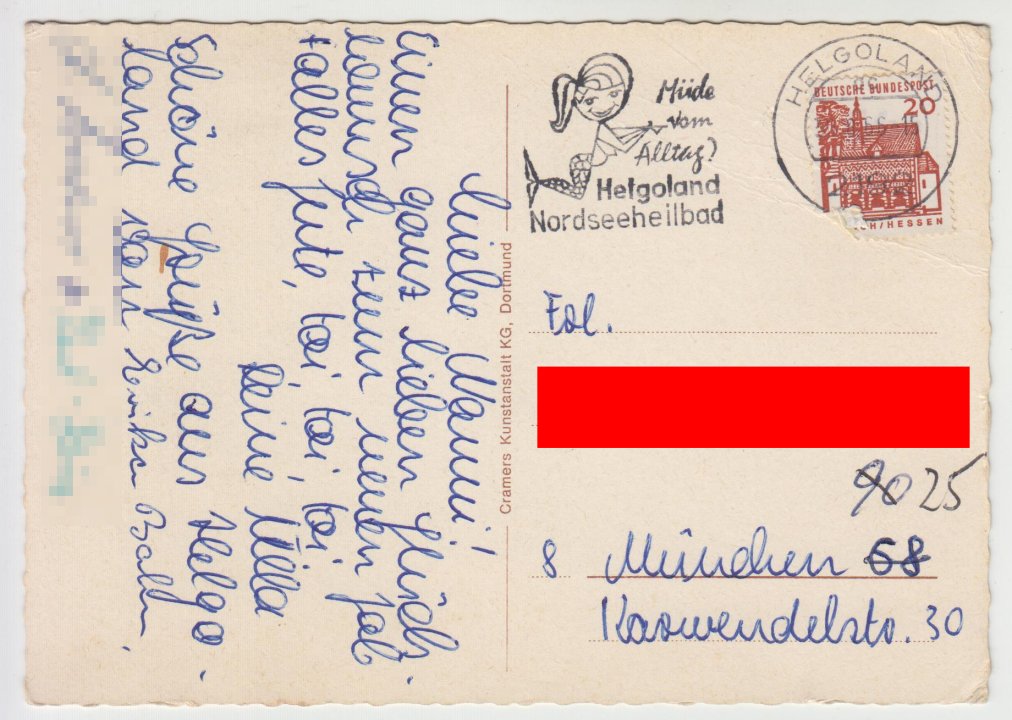 Liebe Nanni!
Einen ganz lieben Glück-
wunsch zum neuen Job.
Falles Gute, toi, toi, toi,
Deine Ulla
Schöne Grüße aus Helgo-
land von
Cramers Kunstanstalt KG, Dortmund
Müde
vom
Alltag?
Helgoland
Nordseeheilbad
HELGOLAND
DEUTSCHE BUNDESPOST
20
CH/HESSEN
Frl.
9025
8 München 68
Karwendelstr. 30